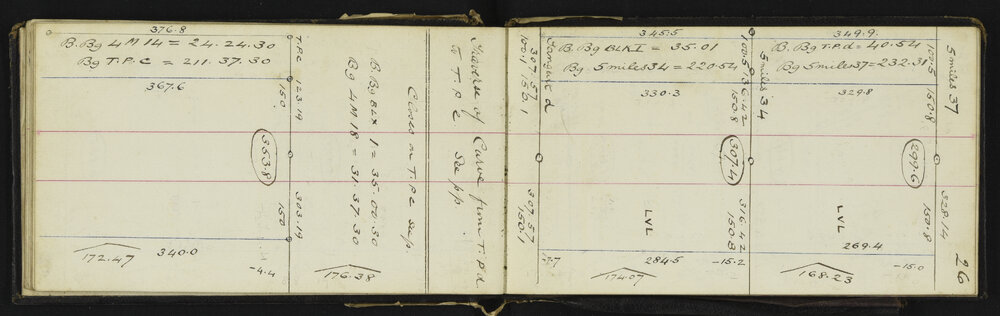 376.8
B.Bg 4M 14 = 24.24.30
Bg T.P.C = 211.37.30
367.6
T.P.C 123.19
150
353.8
303.19
150
172.47
340.0
-4.4
B.Bg BLK 1 = 35.00.30
Bg 4M 18 = 31.37.30
176.38
Closes on T.P.C see p/p
Traverse of Curve from T.P.d
to T.P.C see p/p.
Tangent d
307.57
100.1 150.1
307.57
150.1
345.5
B.Bg BLK I = 35.01
Bg. 5miles 34 = 220.54
330.3
100.5 136.42
150.8
5 miles 34
307.4
316.42
150.8
LVL
284.5
-15.2
174.07
349.9
B.Bg T.P.d = 40.54
Bg 5miles 37 = 232.31
329.8
5 miles 37
100.5 150.8
299.6
328.14
150.8
LVL
269.4
-15.0
168.23
26